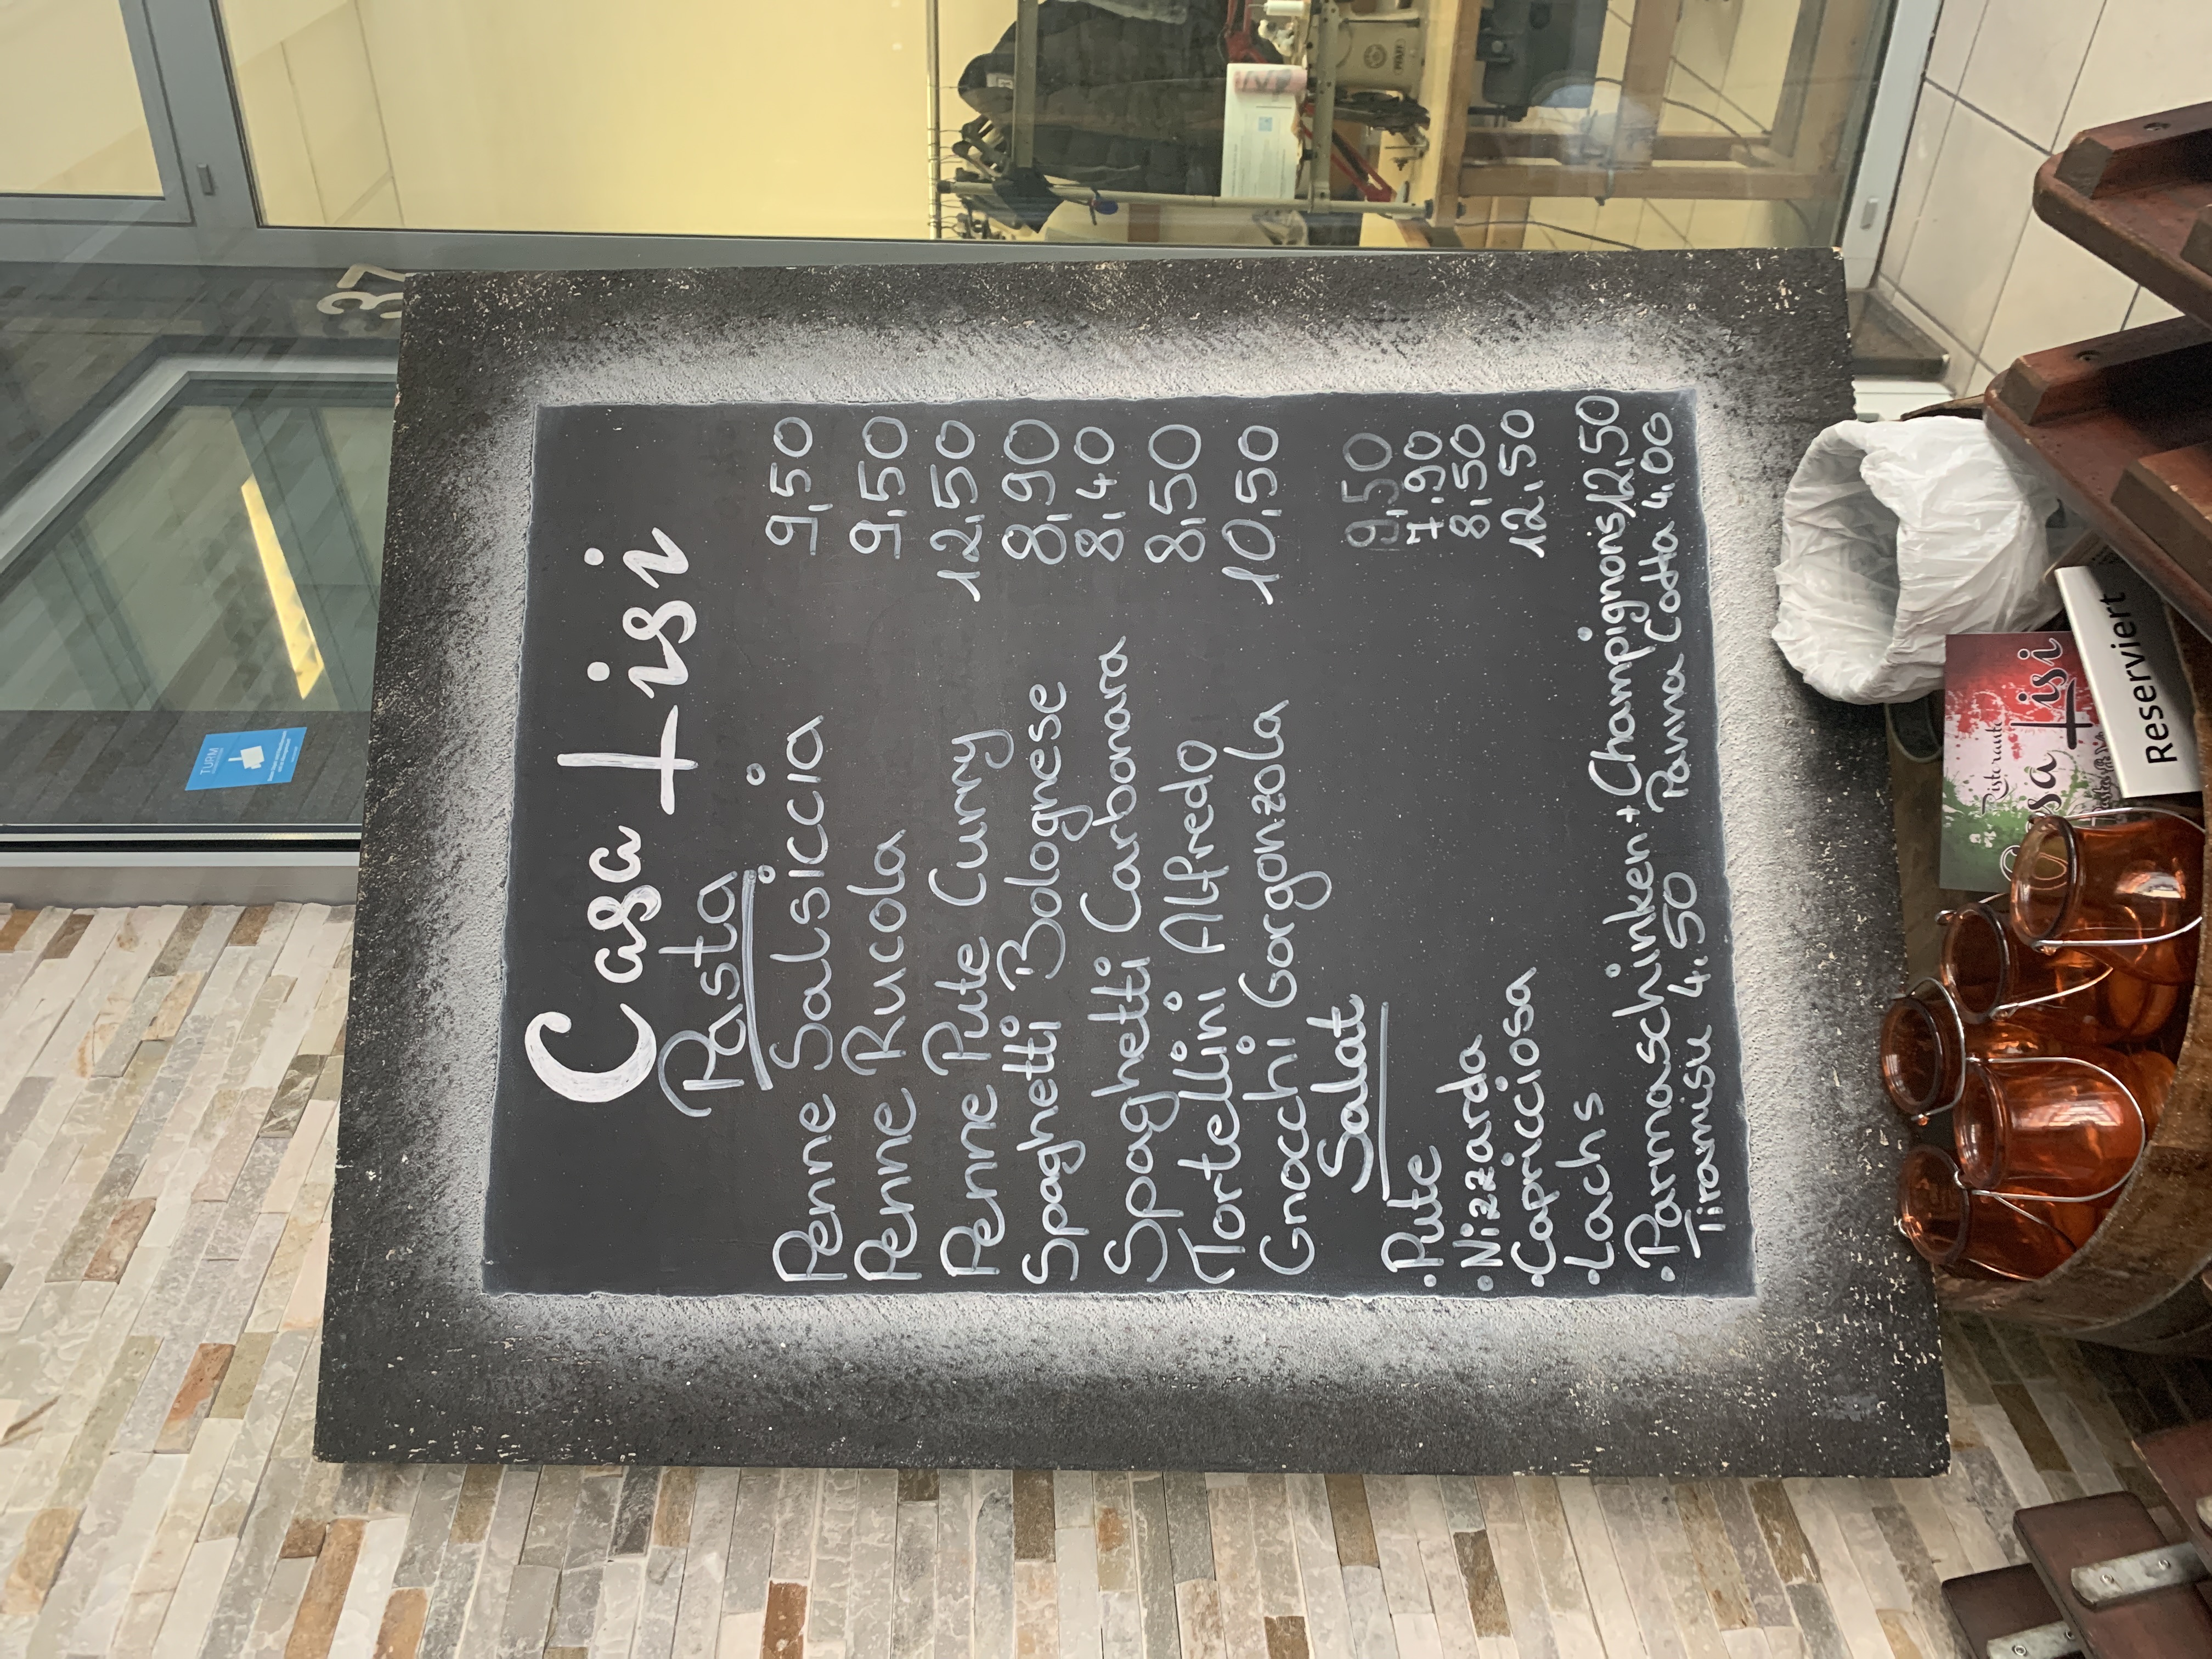 Casa Isi
Pasta
Penne Salsiccia 9,50
Penne Rucola 9,50
Penne Pute Curry 12,50
Spaghetti Bolognese 8,90
Spaghetti Carbonara 8,40
Tortellini Alfredo 8,50
Gnocchi Gorgonzola 10,50
Salat
• Pute 9,50
• Nizzarda 7,90
• Capricciosa 8,50
• Lachs 12,50
• Parmaschinken + Champignons 12,50
Tiramisu 4.50 Panna Cotta 4,00
37
TURM
PFAFF
Ristorante
Isi
Reserviert